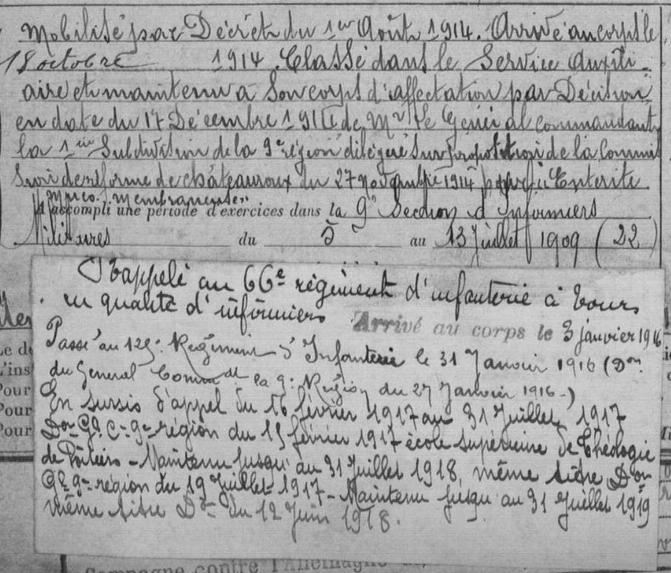 Mobilisé par Décret du 1er Août 1914. Arrivé au corps le
18 octobre 1914. Classé dans le Service Auxili-
aire et maintenu à son corps d'affectation par Décision
en date du 17 Décembre 1914 de Mr le Général commandant
la 1re Subdivision de la 9e région délégué sur proposition de la Commis
sion de réforme de châteauroux du 27 novembre 1914 pour "Entérite
Muco-Membraneuse"
A accompli une période d'exercices dans la 9e Section d'Infirmiers
Militaires du 5 au 13 Juillet 1909 (22
Rappelé au 66e régiment d'infanterie à Tours
en qualité d'infirmiers
Arrivé au corps le 3 janvier 1916
Passé au 125e Régiment d'Infanterie le 31 Janvier 1916 (Don
du General Comdt la 9e Région du 27 Janvier 1916-)
En sursis d'appel du 16 février 1917 au 31 Juillet 1917
Don Gl C. 9e région du 15 février 1917 école supérieure de Théologie
de Poitiers - Maintenu jusqu'au 31 Juillet 1918, même titre Don
9e région du 19 Juillet 1917 - Maintenu jusqu au 31 Juillet 1919
même titre Don du 12 Juin 1918.
Pour
Pour
Pour
Campagne contre l'Allemagne